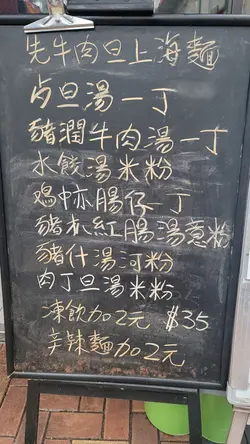 先牛肉旦上海麵
占旦湯一丁
豬潤牛肉湯一丁
水餃湯米粉
鸡中亦腸仔一丁
豬扒紅腸湯意粉
豬什湯河粉
肉丁旦湯米粉
凍飲加2元 $35
辛辣麵加2元